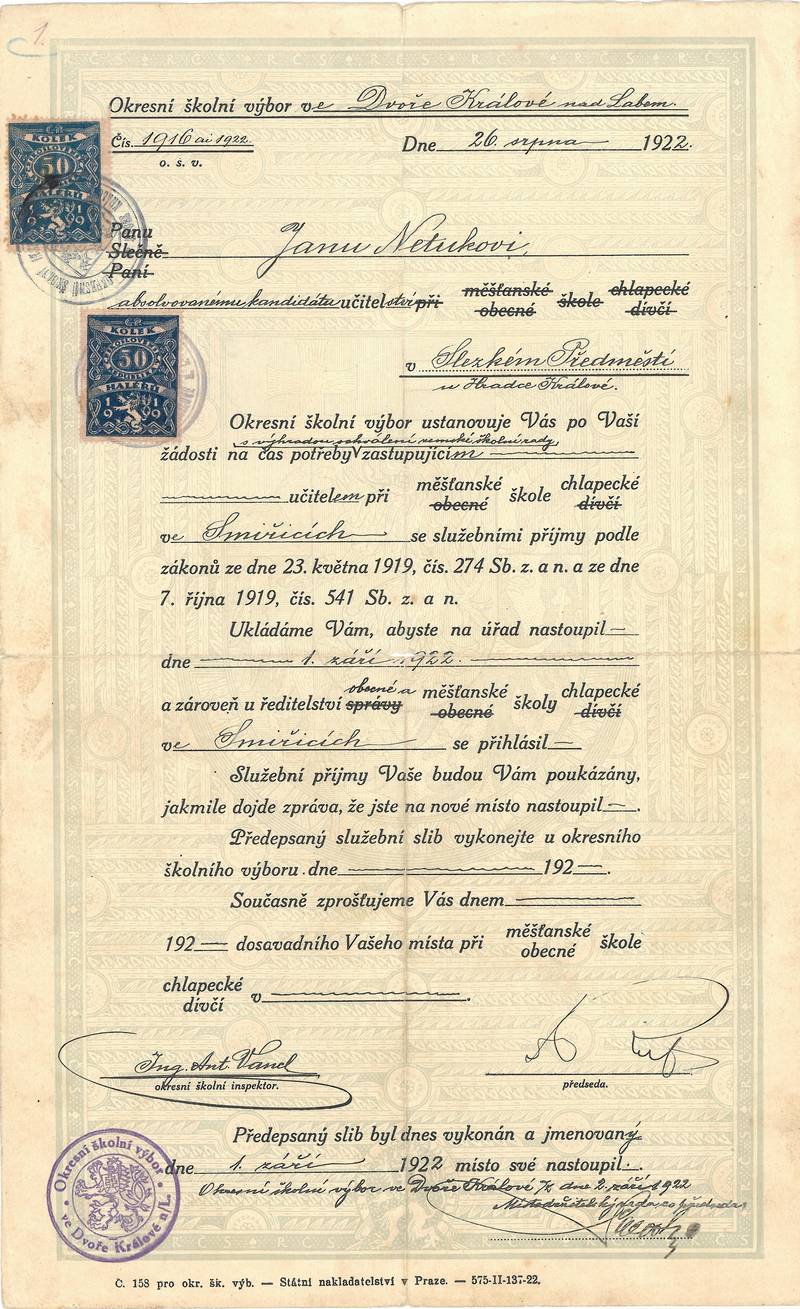 1.
Okresní školní výbor ve Dvoře Králové nad Labem.
Čís. 1916 ai 1922. Dne 26. srpna 1922.
o. š. v.
KOLEK
50
HALÉŘŮ
1919
Panu
Slečně
Paní
Janu Netukovi,
absolvovanému kandidátu učitelství při měšťanské obecné škole chlapecké dívčí
KOLEK
50
HALÉŘŮ
1919
v Slezkém Předměstí
u Hradce Králové.
Okresní školní výbor ustanovuje Vás po Vaší
s výhradou schválení zemské školní rady,
žádosti na čas potřeby zastupujícím
učitelem při měšťanské obecné škole chlapecké dívčí
ve Smiřicích se služebními příjmy podle
zákonů ze dne 23. května 1919, čís. 274 Sb. z. a n. a ze dne
7. října 1919, čís. 541 Sb. z. a n.
Ukládáme Vám, abyste na úřad nastoupil
dne 1. září 1922.
a zároveň u ředitelství správy obecné a měšťanské obecné školy chlapecké dívčí
ve Smiřicích se přihlásil
Služební příjmy Vaše budou Vám poukázány,
jakmile dojde zpráva, že jste na nové místo nastoupil .
Předepsaný služební slib vykonejte u okresního
školního výboru dne 192 .
Současně zprošťujeme Vás dnem
192 dosavadního Vašeho místa při měšťanské obecné škole
chlapecké dívčí v .
Ing. Ant. Vancl
okresní školní inspektor. předseda.
Předepsaný slib byl dnes vykonán a jmenovaný
dne 1. září 1922 místo své nastoupil.
Okresní školní výbor ve Dvoře Králové n/L dne 2. září 1922
Okresní školní výbor
ve Dvoře Králové n/L.
Č. 158 pro okr. šk. výb. — Státní nakladatelství v Praze. — 575-II-137-22.